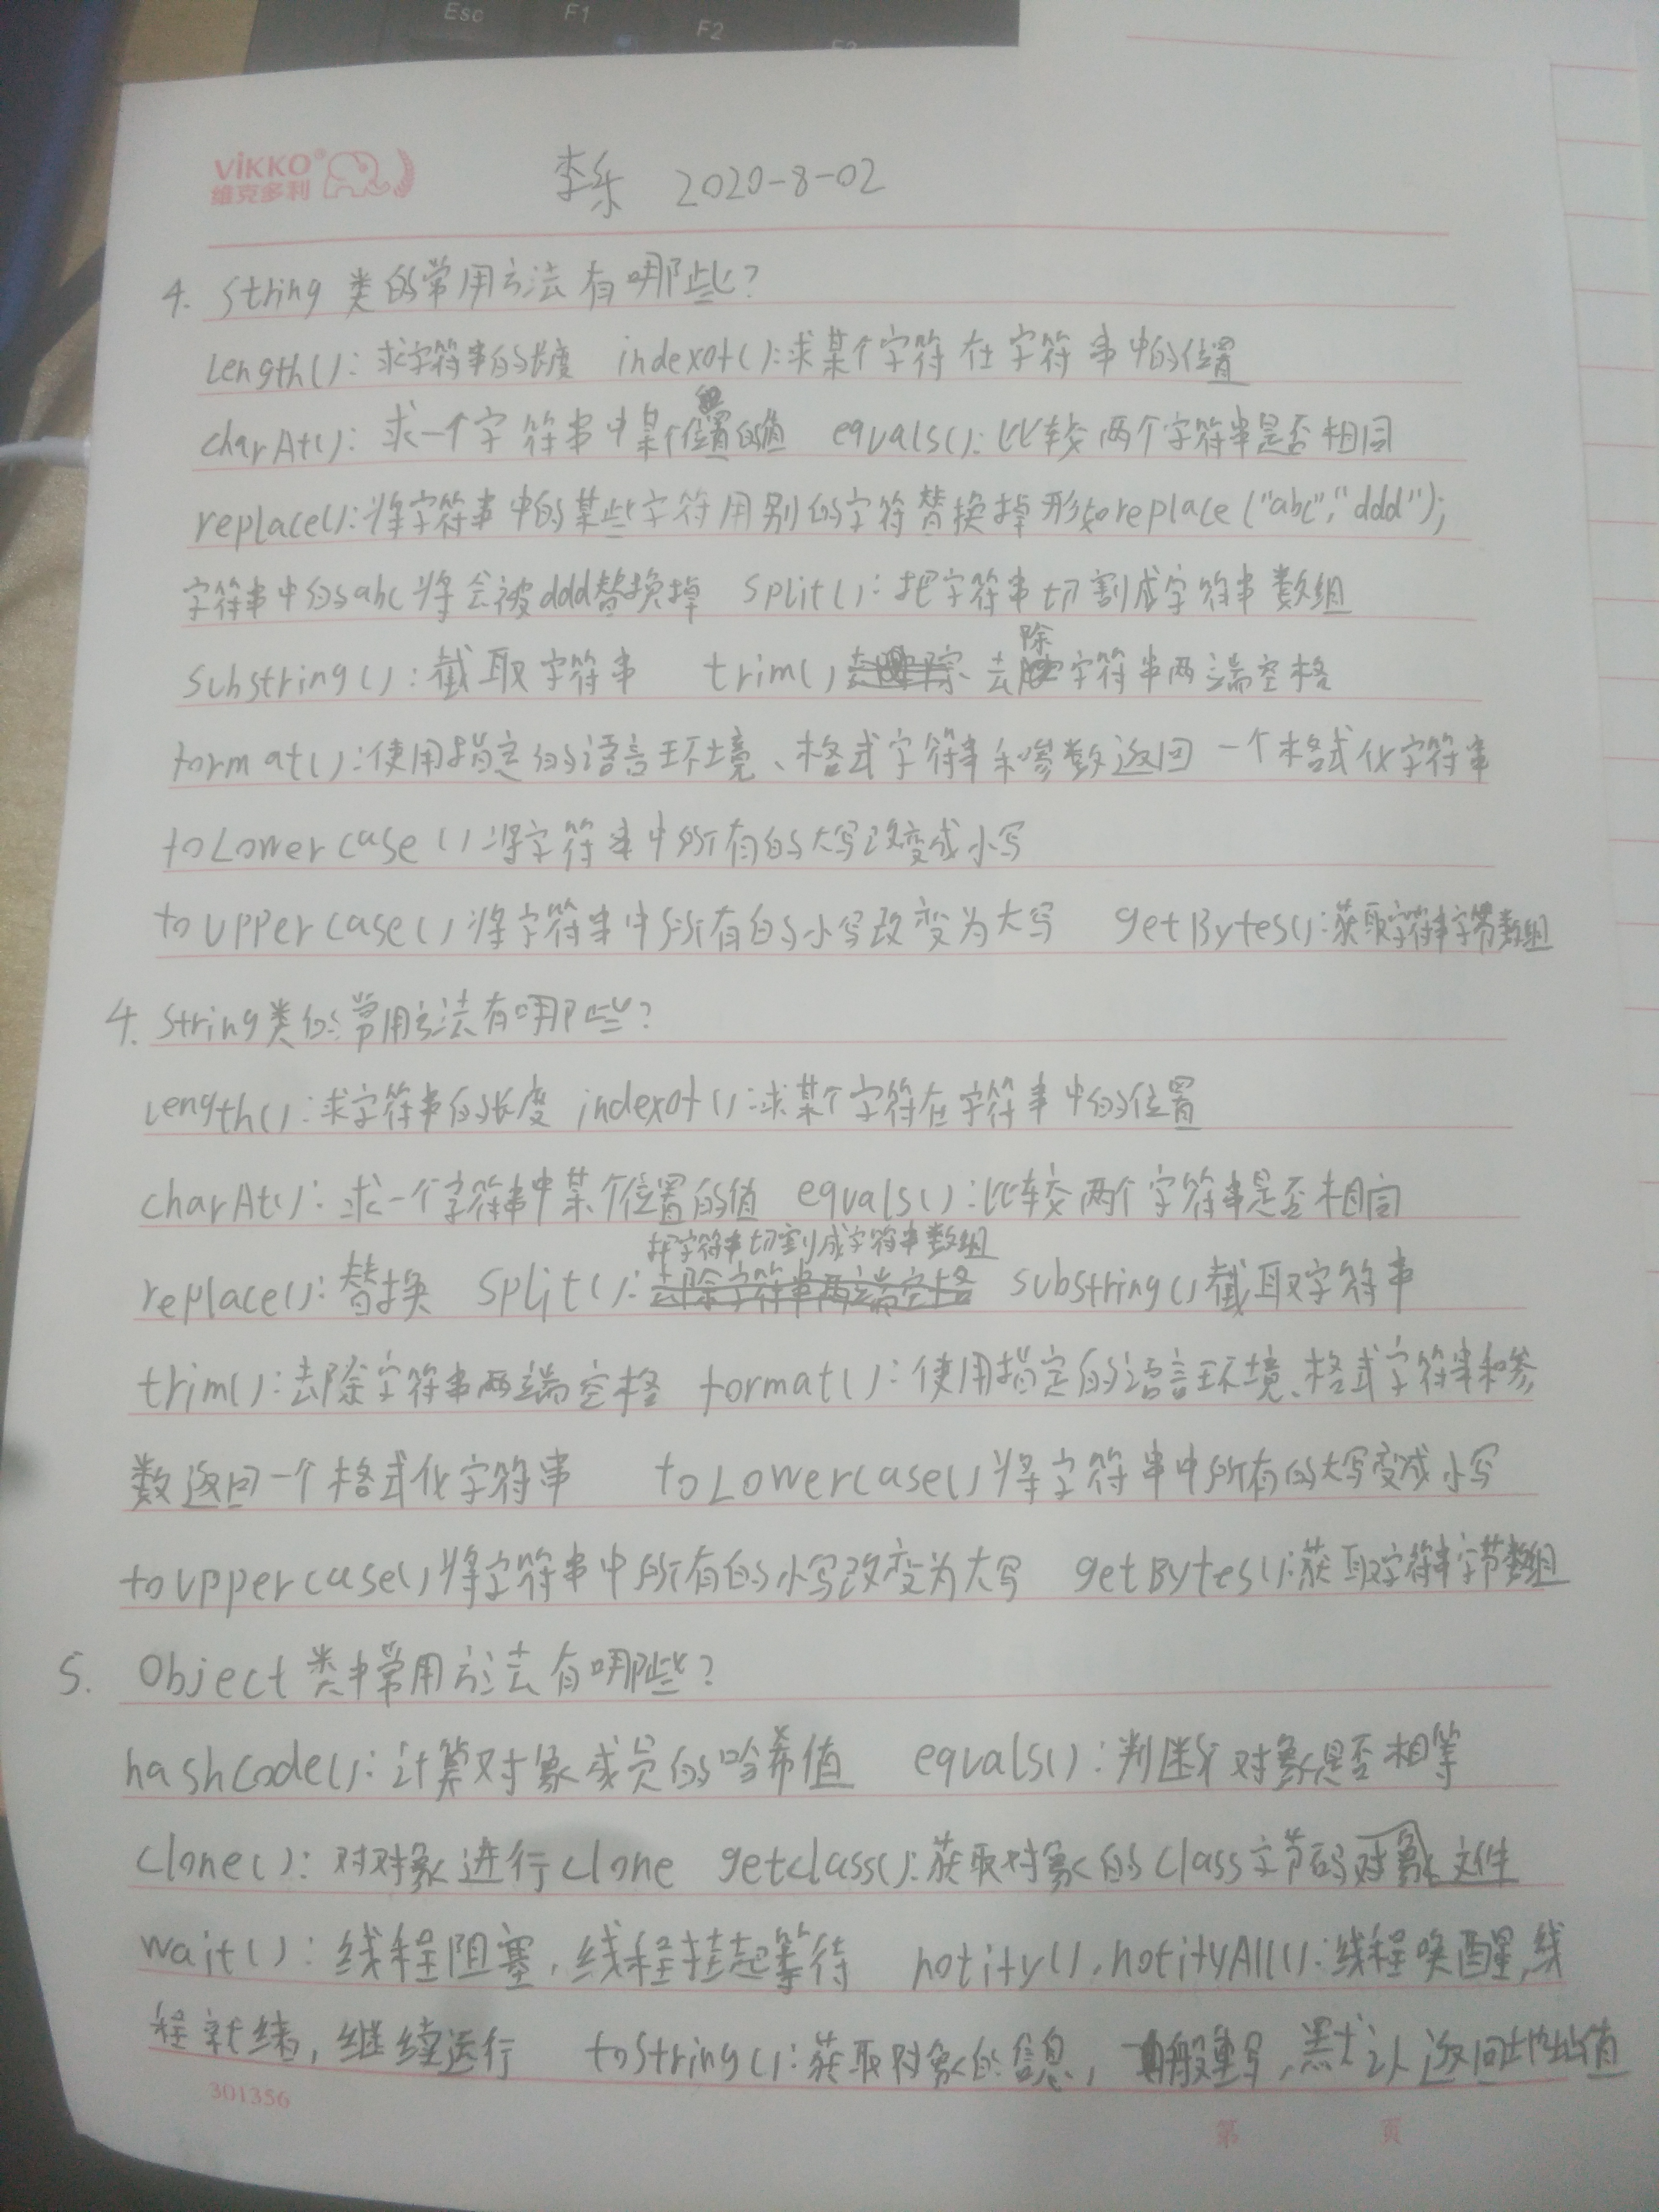 Esc F1 F2 F3
VIKKO®
维克多利
李乐 2020-8-02
4. String 类的常用方法有哪些?
length(): 求字符串的长度 indexOf():求某个字符在字符串中的位置
charAt(): 求一个字符串中某个位置的值 equals(): 比较两个字符串是否相同
replace():将字符串中的某些字符用别的字符替换掉 形如replace("abc","ddd");
字符串中的abc将会被ddd替换掉 split(): 把字符串切割成字符串数组
substring(): 截取字符串 trim() 去除字符串两端空格
format():使用指定的语言环境、格式字符串和参数返回一个格式化字符串
toLowercase()将字符串中所有的大写改变成小写
toUppercase()将字符串中所有的小写改变为大写 getBytes():获取字符串字节数组
4. String类的常用方法有哪些?
length():求字符串的长度 indexOf():求某个字符在字符串中的位置
charAt(): 求一个字符串中某个位置的值 equals():比较两个字符串是否相同
把字符串切割成字符串数组
replace():替换 split(): 去除字符串两端空格 substring()截取字符串
trim():去除字符串两端空格 format():使用指定的语言环境、格式字符串和参
数返回一个格式化字符串 toLowercase()将字符串中所有的大写变成小写
toUppercase()将字符串中所有的小写改变为大写 getBytes():获取字符串字节数组
5. Object 类中常用方法有哪些?
hashcode():计算对象成员的哈希值 equals():判断对象是否相等
clone(): 对对象进行clone getclass():获取对象的class字节码对象文件
wait(): 线程阻塞,线程挂起等待 notify(),notifyAll():线程唤醒,线
程就绪,继续运行 toString():获取对象的信息,一般重写,默认返回地址值
301356
第 页